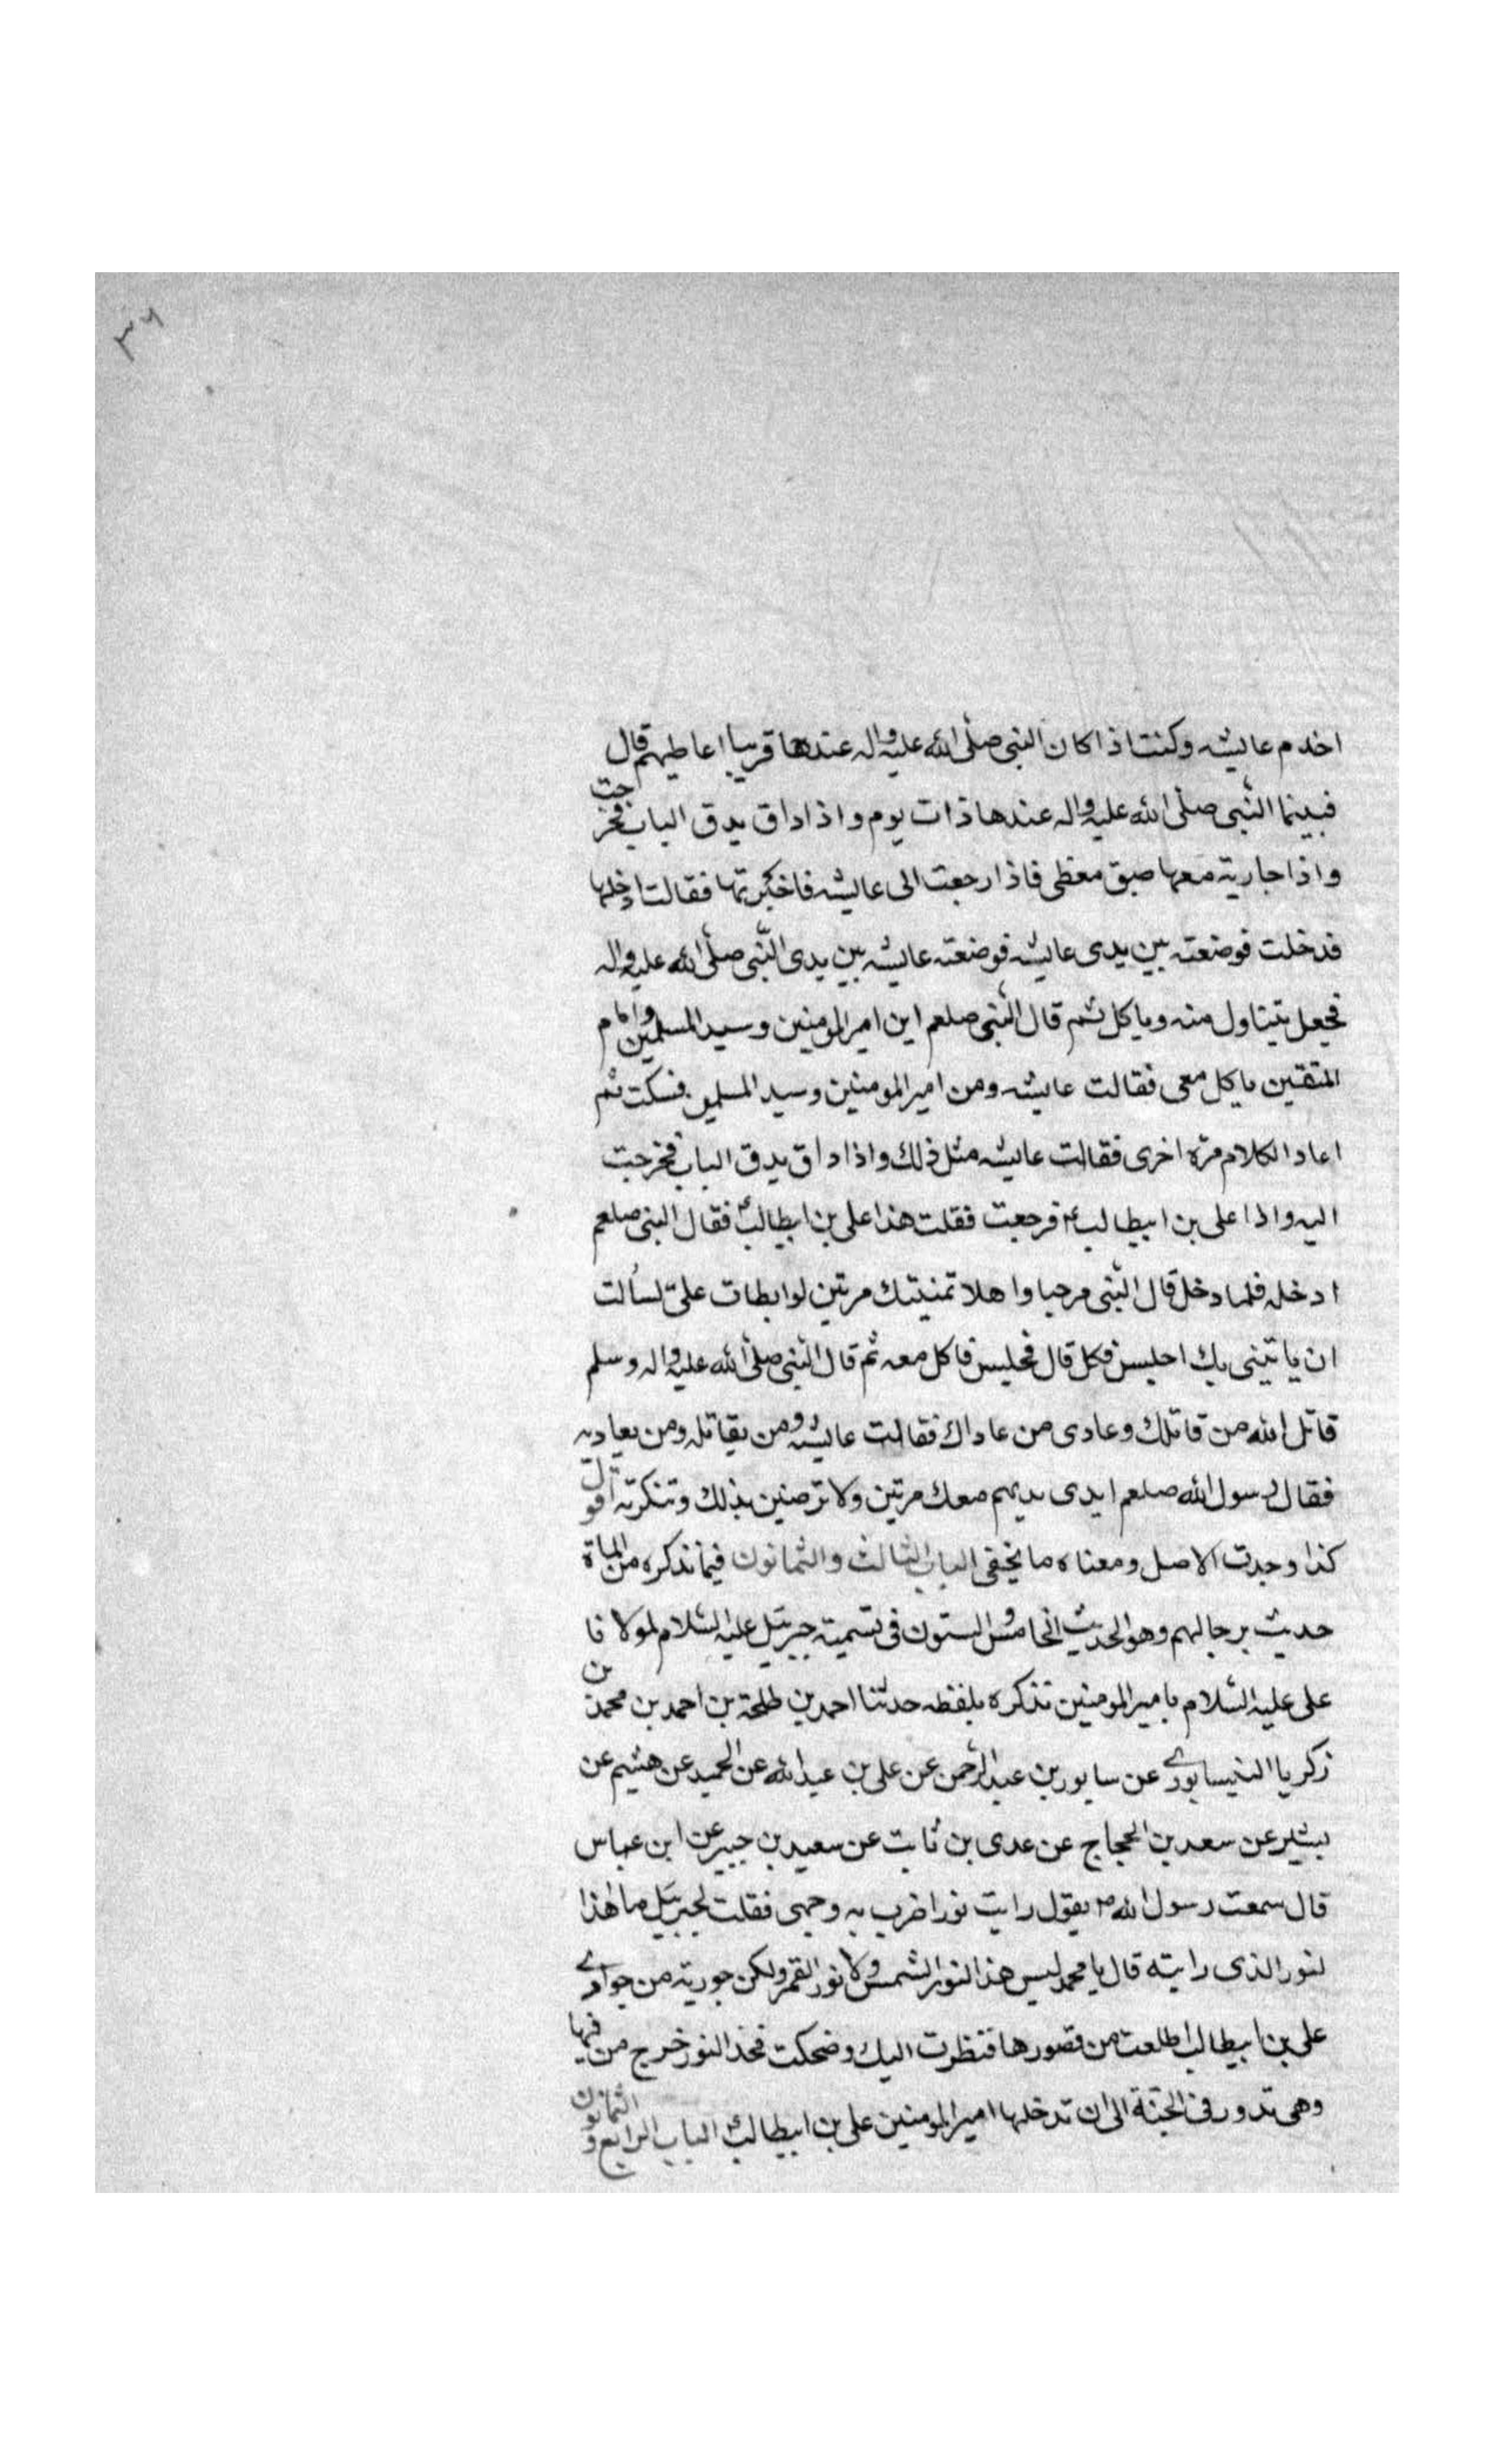 ٣٦
اخدم عايشه وكنت اذا كان النبى صلى الله عليه واله عندها قريبا اعاطيهم قال
فبينما النبى صلى الله عليه واله عندها ذات يوم واذا داق يدق الباب فخرجت
واذا جارية معها صبق مغطى فاذا رجعت الى عايشه فاخبرتها فقالت ادخلها
فدخلت فوضعته بين يدى عايشه فوضعته عايشه بين يدى النبى صلى الله عليه واله
فجعل يتناول منه وياكل ثم قال النبى صلعم اين امير المومنين وسيد المسلمين وامام
المتقين ياكل معى فقالت عايشه ومن امير المومنين وسيد المسلمين فسكت ثم
اعاد الكلام مرة اخرى فقالت عايشه مثل ذلك واذا داق يدق الباب فخرجت
اليه واذا على بن ابيطالب ع فرجعت فقلت هذا على بن ابيطالب فقال النبى صلعم
ادخله فلما دخل قال النبى مرحبا واهلا تمنيتك مرتين لو ابطات على لسألت
ان ياتينى بك اجلس فكل قال فجلس فاكل معه ثم قال النبى صلى الله عليه واله وسلم
قاتل الله من قاتلك وعادى من عاداك فقالت عايشه ومن يقاتله ومن يعاديه
فقال رسول الله صلعم ايدى يديهم معك مرتين ولا ترضين بذلك وتنكرته اقول
كذا وجدت الاصل ومعناه ما يخفى الباب الثالث والثمانون فيما نذكره من المائة
حديث برجالهم وهو الحديث الخامس والستون فى تسمية جبرئيل عليه السلام لمولانا
على عليه السلام بامير المومنين نذكره بلفظه حدثنا احمد بن طلحة بن احمد بن محمد بن
زكريا النيسابورى عن سابور بن عبد الرحمن عن على بن عبد الله عن الحميد عن هشيم عن
بشير عن سعد بن الحجاج عن عدى بن ثابت عن سعيد بن جبير عن ابن عباس
قال سمعت رسول الله ص يقول رايت نورا ضرب به وجهى فقلت لجبرئيل ما هذا
لنور الذى رايته قال يا محمد ليس هذا النور الشمس ولا نور القمر ولكن جورية من جوارى
على بن ابيطالب اطلعت من قصورها فنظرت اليك وضحكت فخذ النور خرج من فيها
وهى تدور فى الجنة الى ان تدخلها امير المومنين على بن ابيطالب الباب الرابع والثمانون